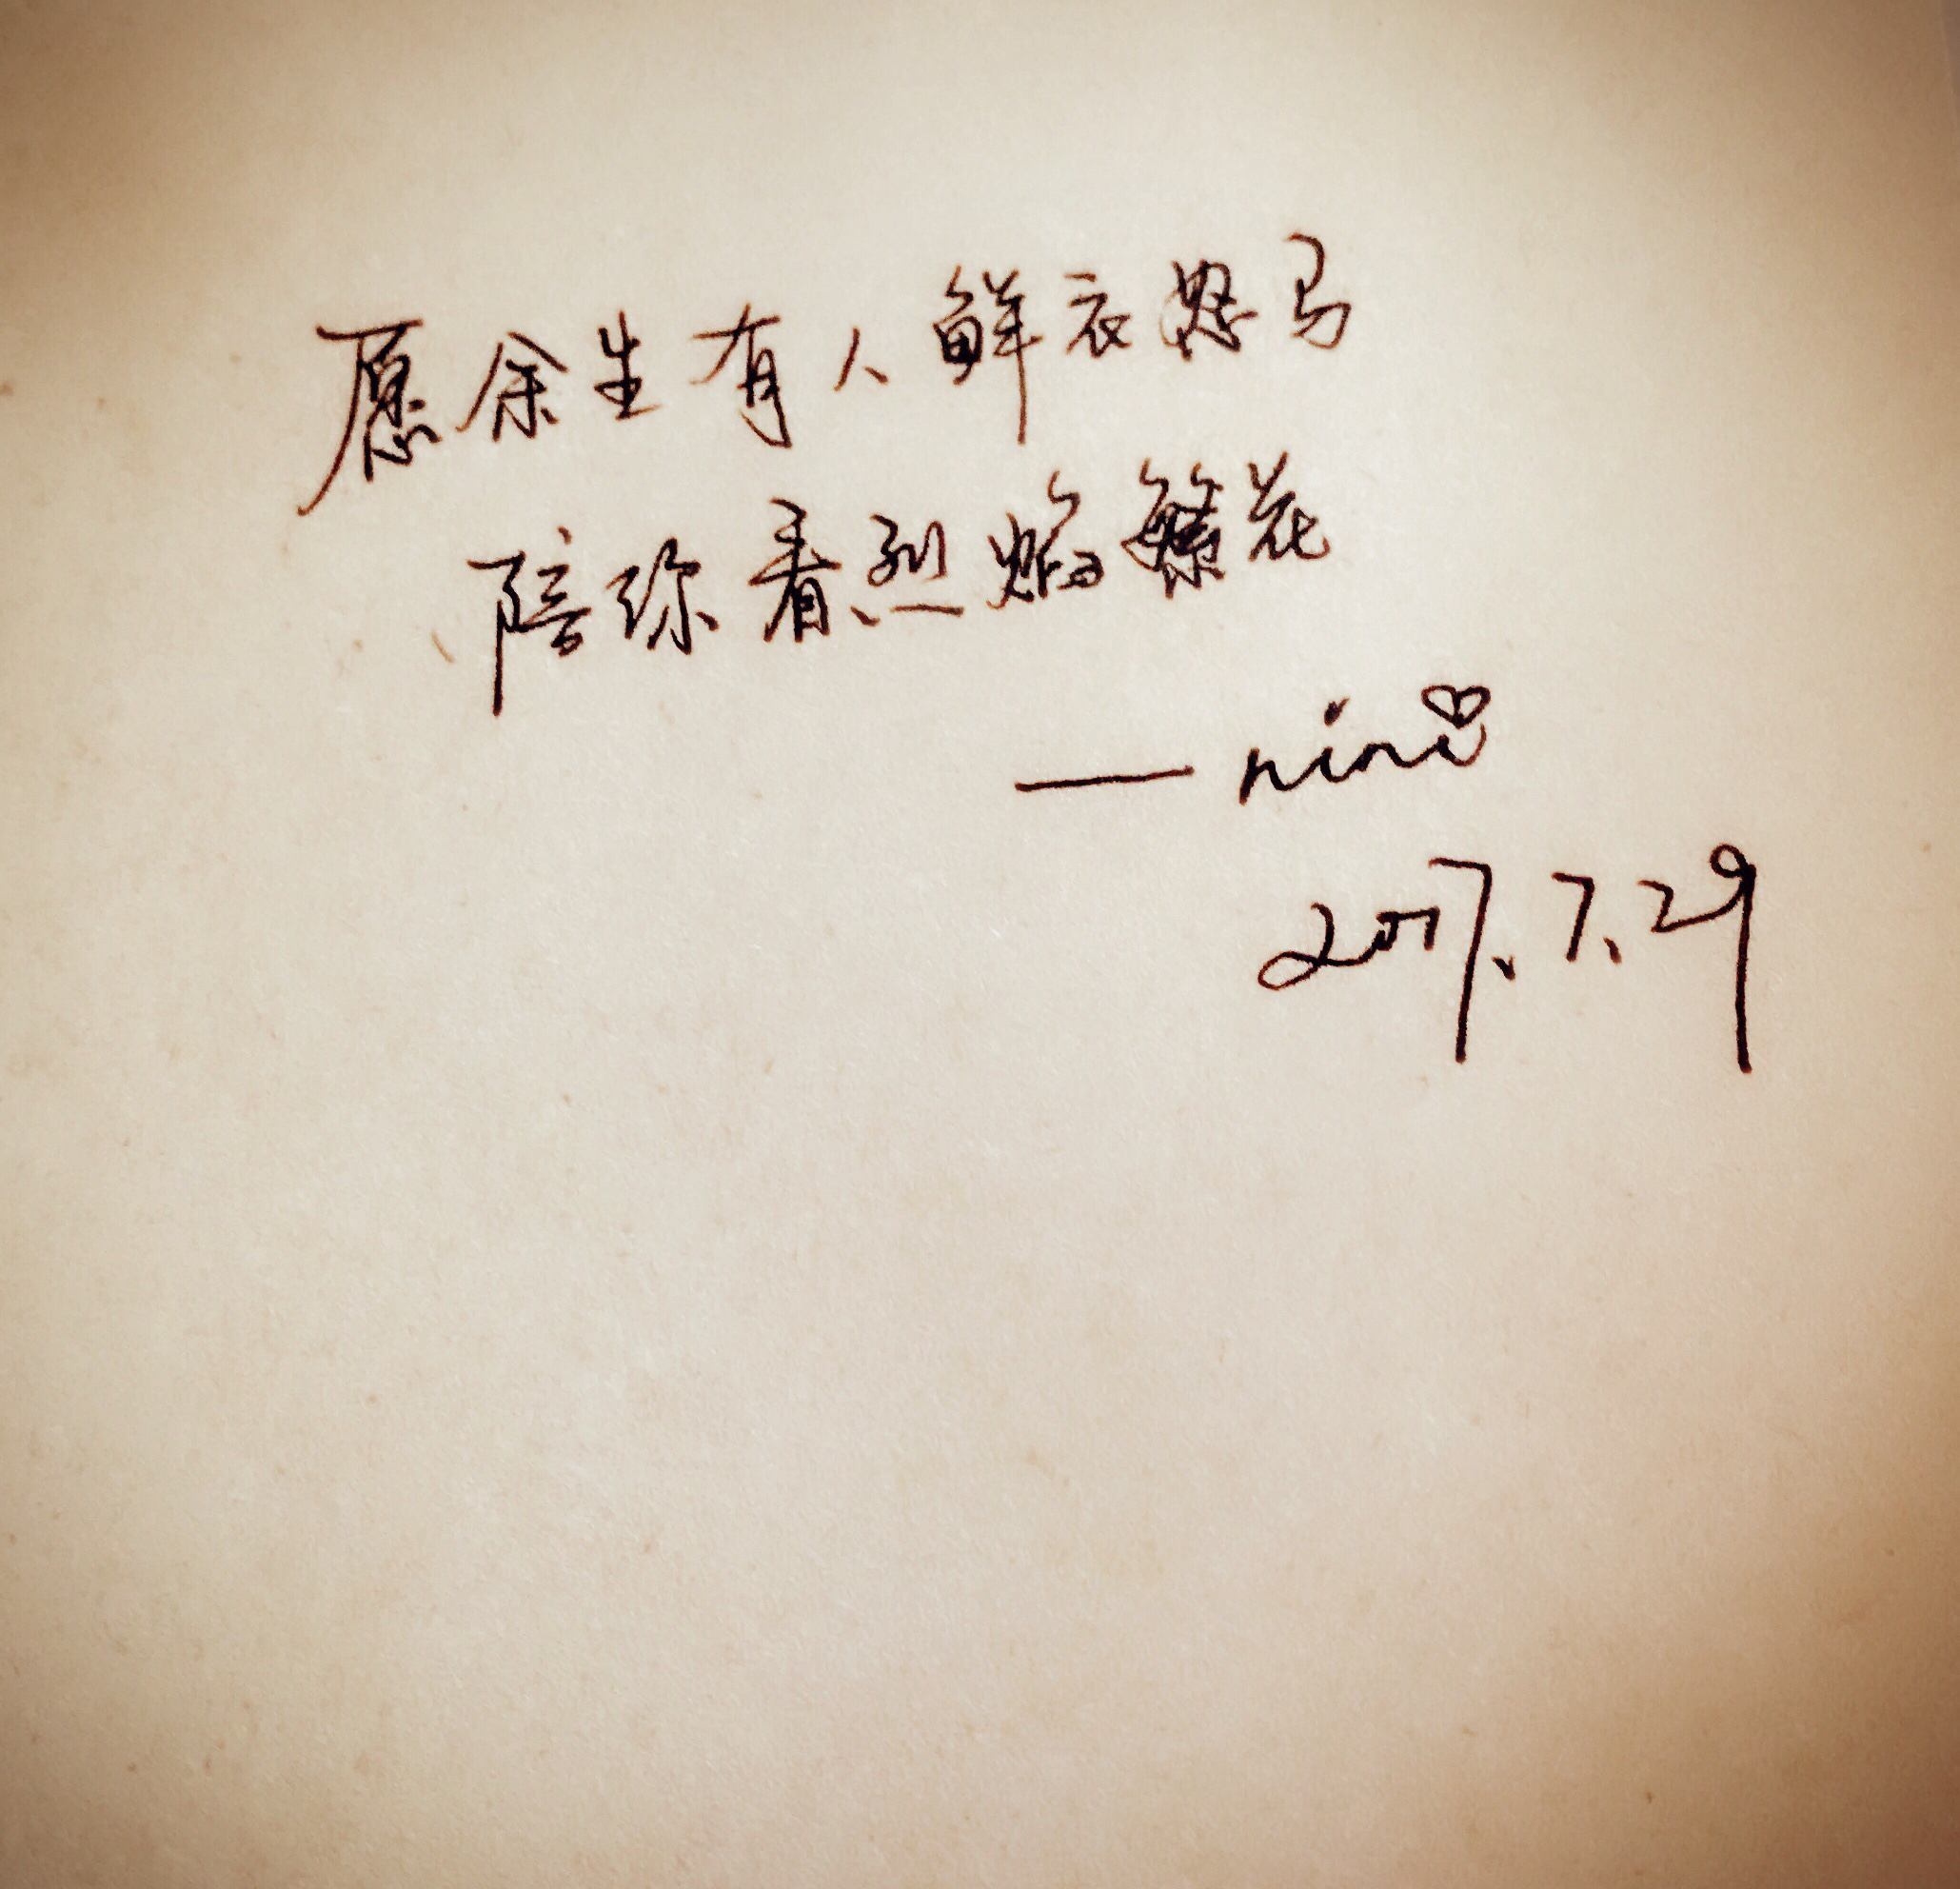 愿余生有人鲜衣怒马
陪你看烈焰繁花
——nini
2017.7.29